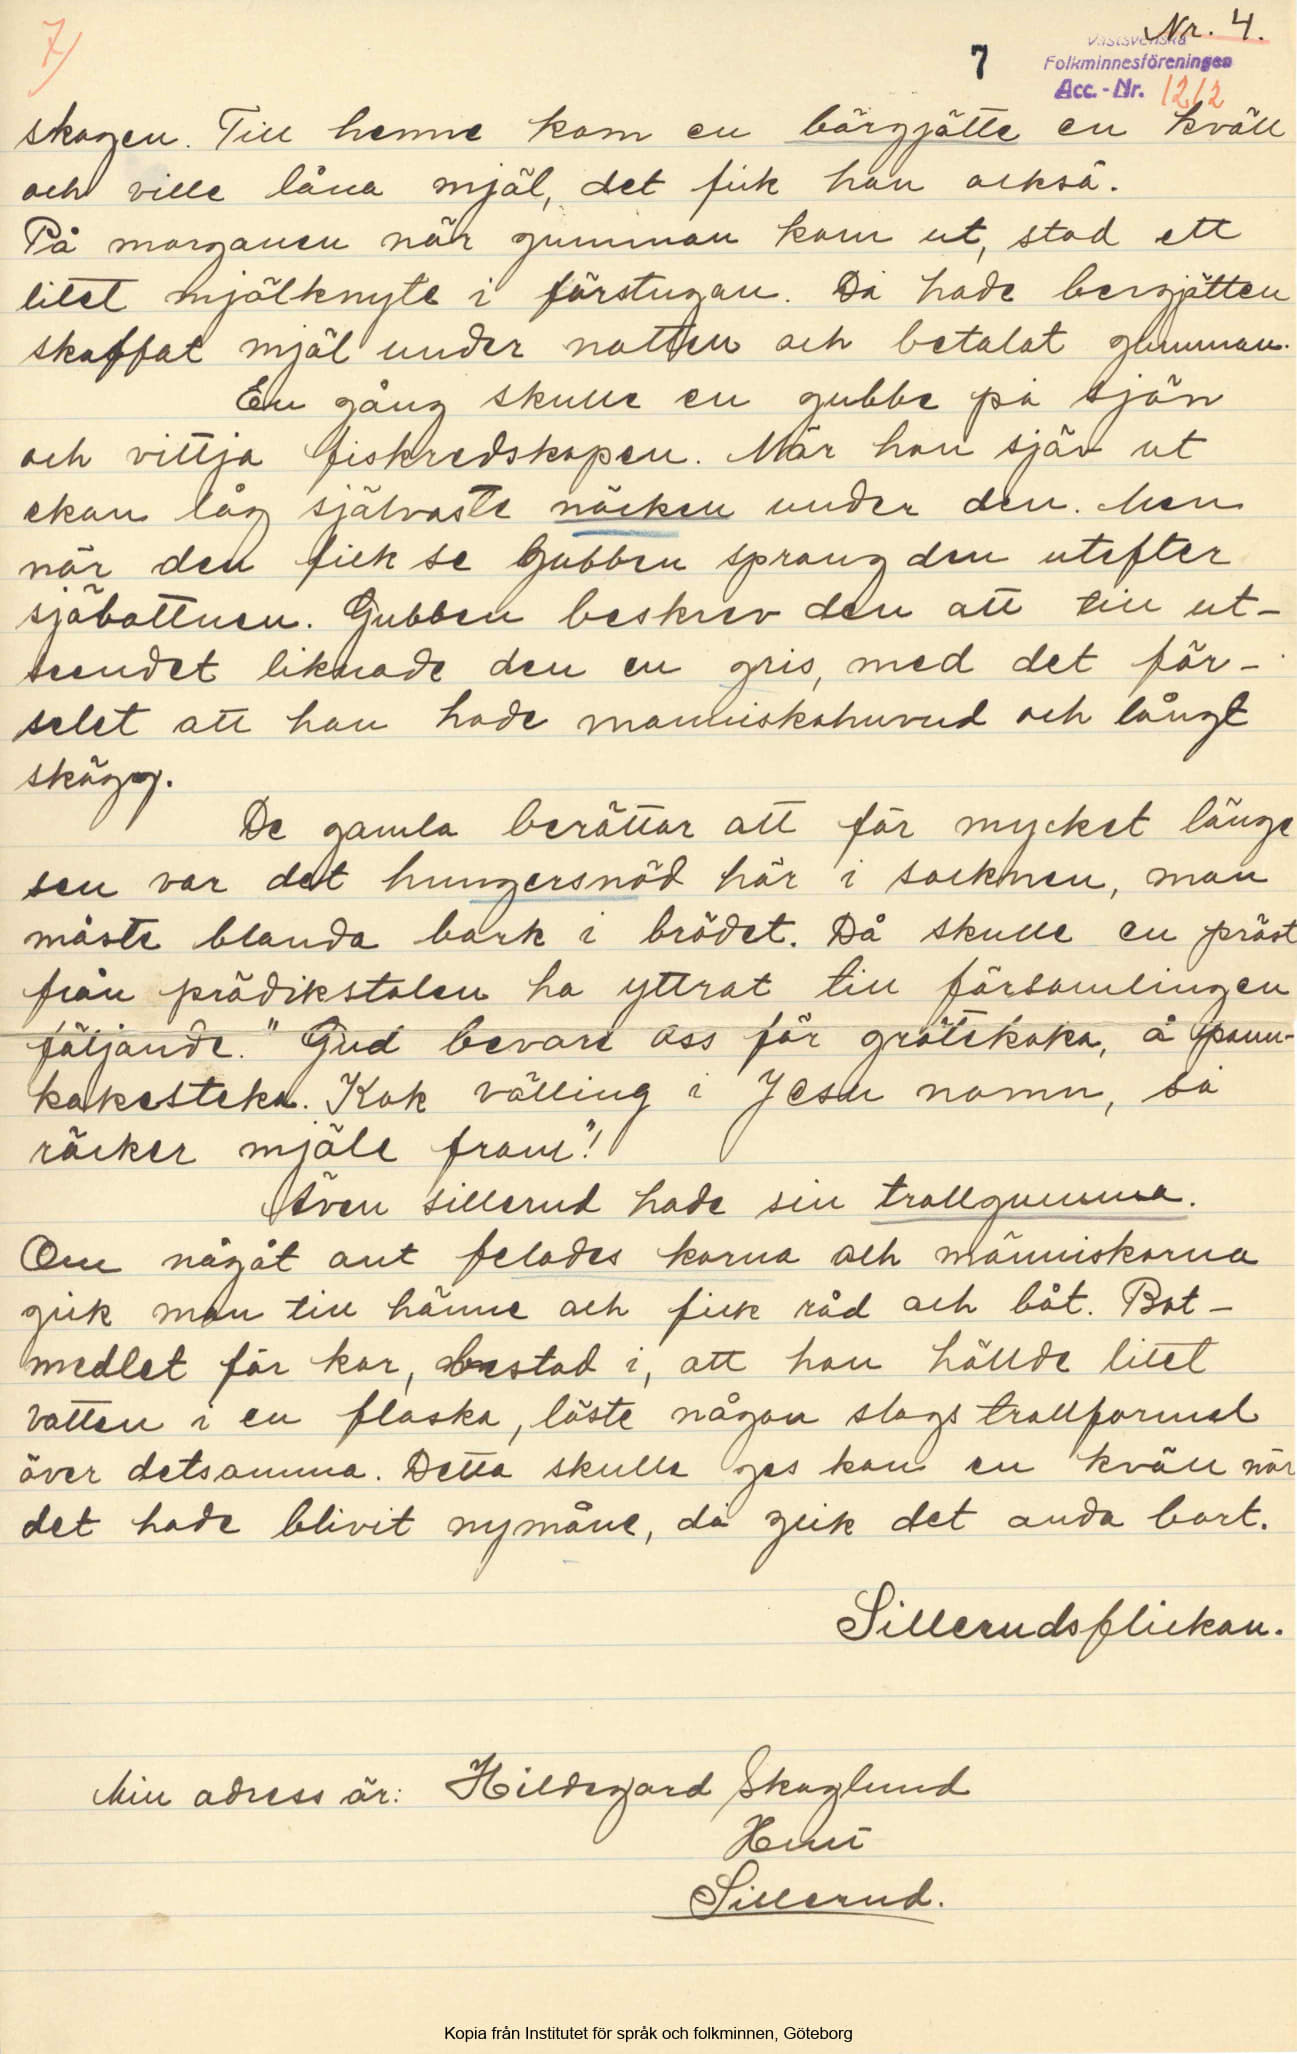 7)
Nr. 4.
7
Västsvenska
Folkminnesföreningen
Acc. - Nr. 1212
skogen. Till henne kom en bärgjätte en kväll
och ville låna mjäl, det fick han också.
På morgonen när gumman kom ut, stod ett
litet mjölknyte i förstugan. Då hade bergjätten
skaffat mjäl under natten och betalat gumman.
En gång skulle en gubbe på sjön
och vittja fiskredskapen. När han sjöv ut
ekan låg självaste näcken under den. Men
när den fick se Gubben sprang den utefter
sjöbottnen. Gubben beskrev den att till ut-
seendet liknade den en gris, med det för-
selet att han hade manniskohuvud och långt
skägg.
De gamla berättar att för mycket länge
sen var det hungersnöd här i socknen, man
måste blanda bark i brödet. Då skulle en präst
från prädikstolen ha yttrat till församlingen
följande. "Gud bevare oss för grötekoka, å pann-
kakesteka. Kok välling i Jesu namn, så
räcker mjöle fram"!
Även Sillerud hade sin trollgumma.
Om någåt ant felades korna och människorna
gick man till hänne och fick råd och båt. Bot-
medlet för kor, bestod i, att hon hällde litet
vatten i en flaska, läste någon slags trollformel
över detsamma. Detta skulle ges kon en kväll när
det hade blivit nymåne, då gick det onda bort.
Sillerudsflickan.
Min adress är: Hildegard Skoglund
Sillerud.
Kopia från Institutet för språk och folkminnen, Göteborg